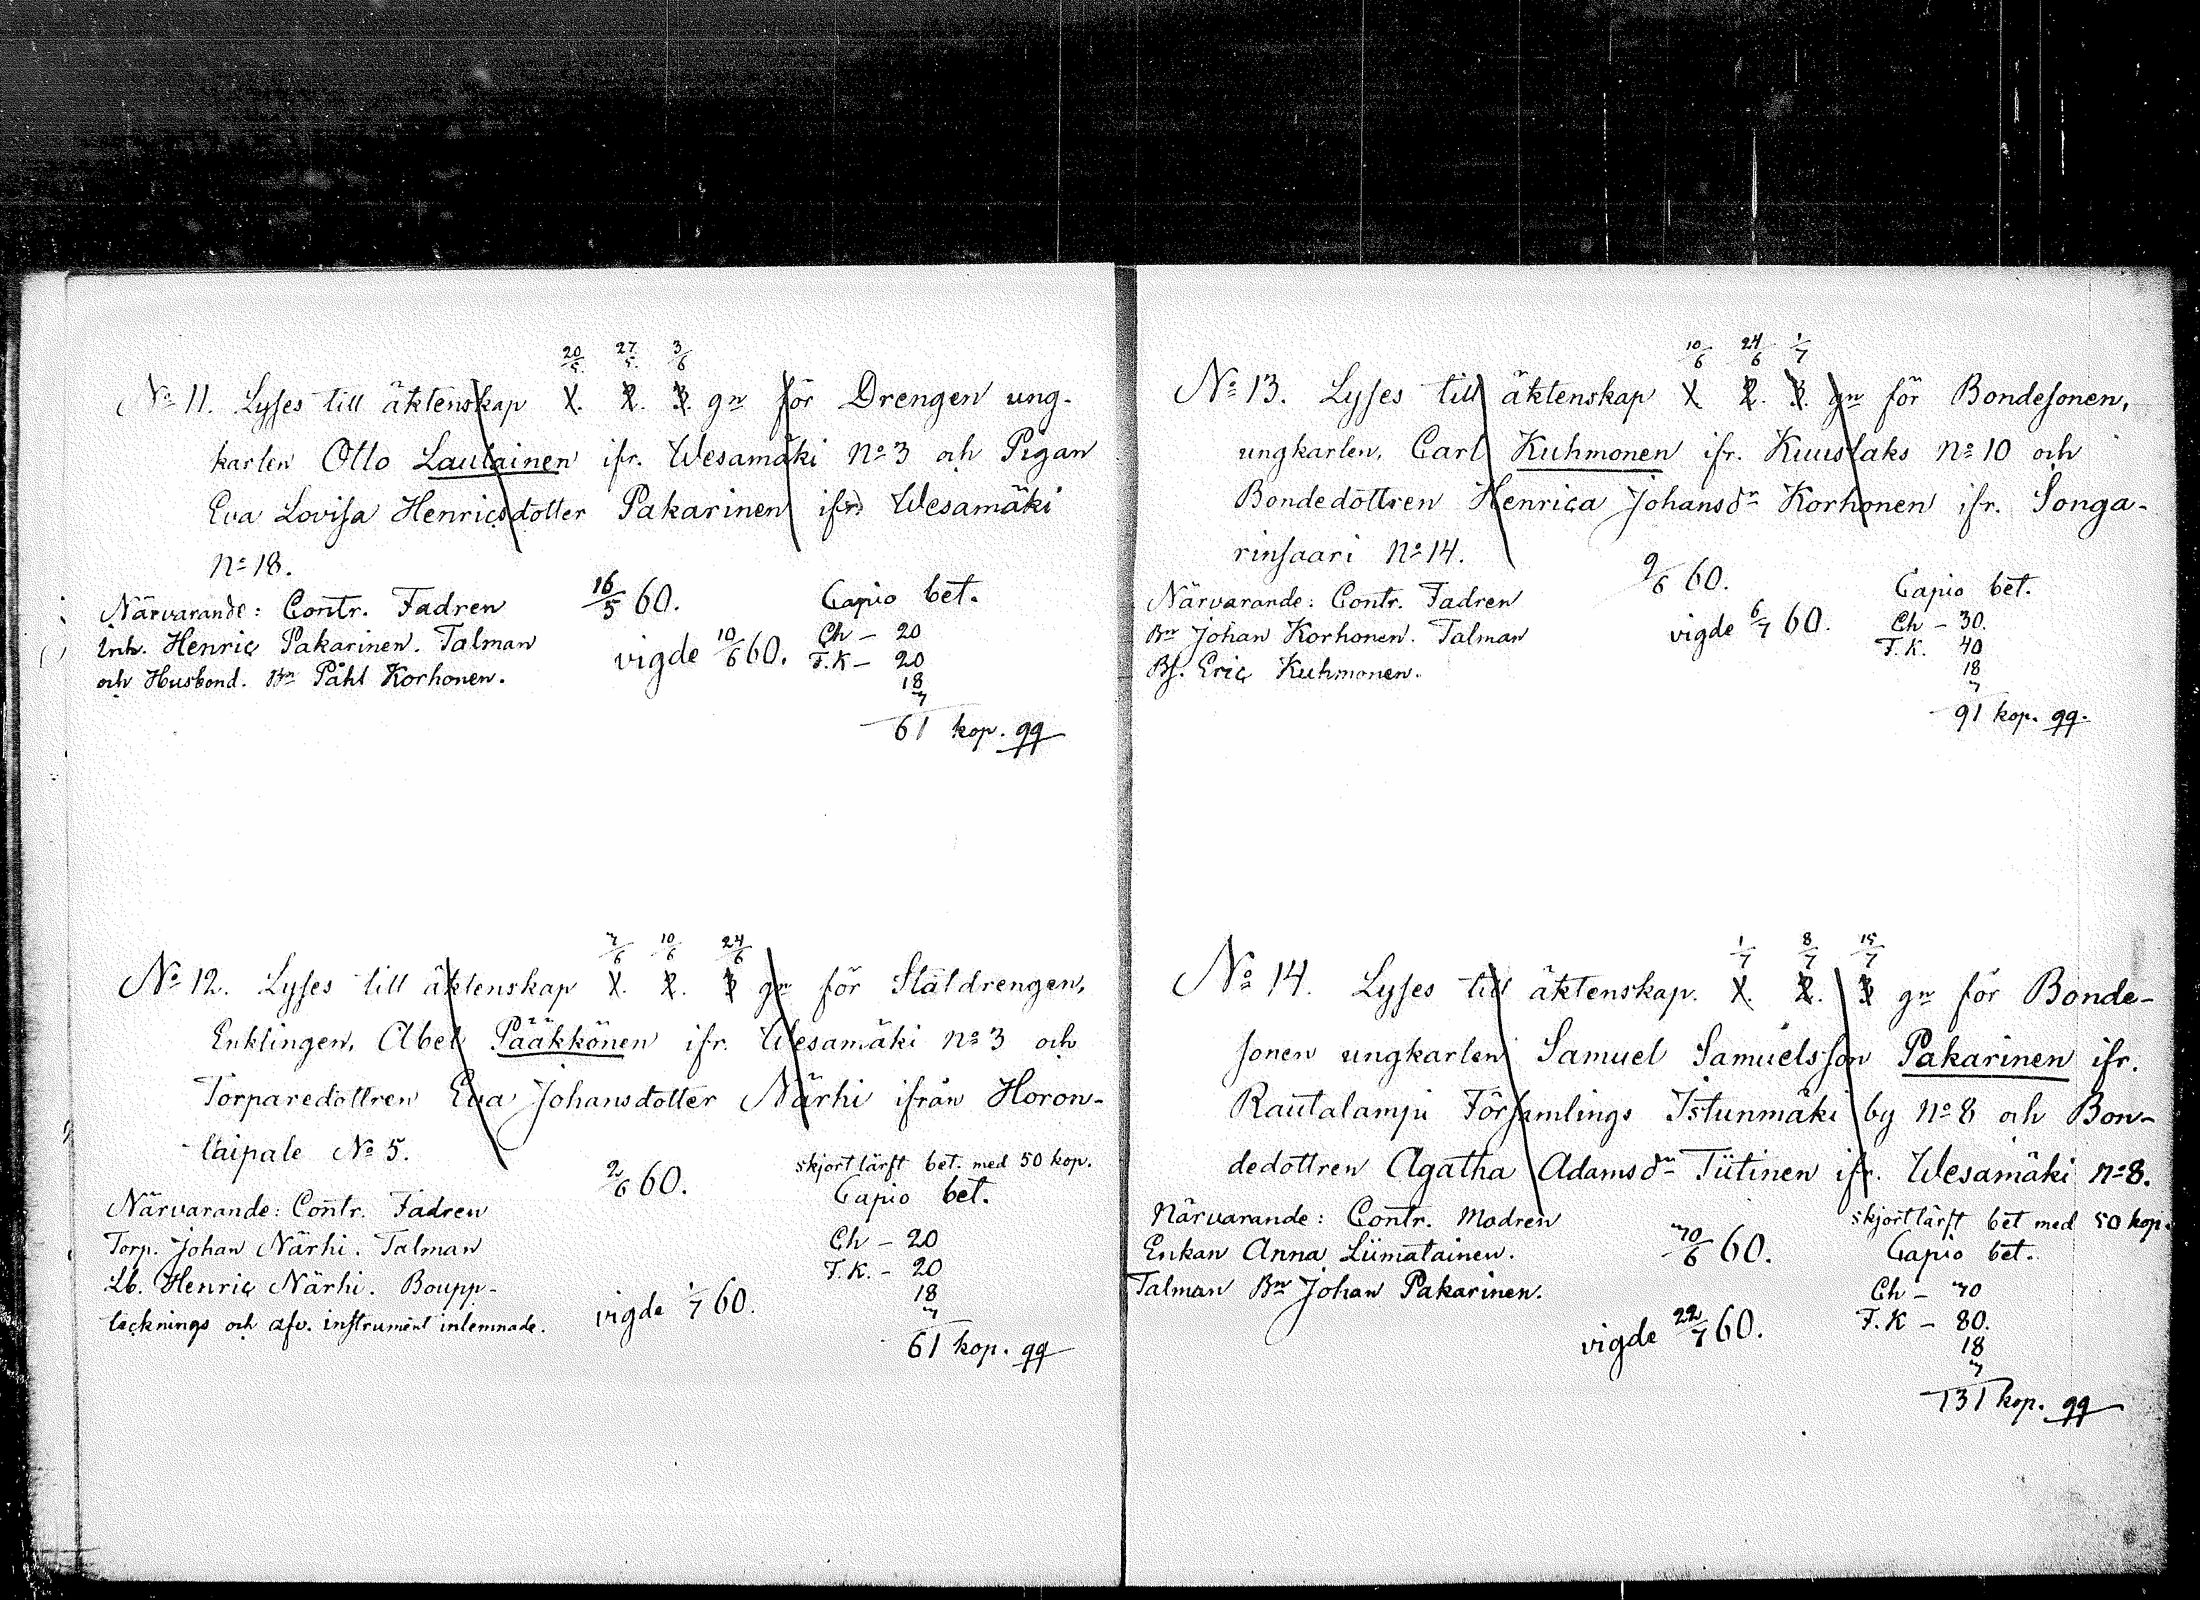 20/5 27/5 3/6
No 11. Lyses till äktenskap 1. 2. 3. gr för Drengen ung-
karlen Otto Lautainen ifr. Wesamäki No 3 och Pigan
Eva Lovisa Henricsdotter Pakarinen ifr. Wesamäki
No 18.
Närvarande: Contr. Fadren 16/5 60. Capio bet.
Inh. Henric Pakarinen. Talman vigde 10/6 60. Ch - 20
och Husbond. Bn Påhl Korhonen. F.K - 20
18
7
61 kop. qq
7/6 10/6 24/6
No 12. Lyses till äktenskap 1. 2. 3 gr för Släldrengen,
Enklingen, Abel Pääkkönen ifr. Wesamäki No 3 och
Torparedottren Eva Johansdotter Närhi ifrån Horon-
taipale No 5.
2/6 60. skjortlärft bet. med 50 kop.
Närvarande: Contr. Fadren Capio bet.
Torp. Johan Närhi. Talman Ch - 20
Lb. Henric Närhi. Boupp- F.K. - 20
tecknings och afv. instrument inlemnade. vigde 1/7 60. 18
7
61 kop. qq
10/6 24/6 1/7
No 13. Lyses till äktenskap 1 2. 3. gr för Bondesonen,
ungkarlen, Carl Kuhmonen ifr. Kuuslaks No 10 och
Bondedottren Henrica Johansdr Korhonen ifr. Songa-
rinsaari No 14.
Närvarande: Contr. Fadren 9/6 60. Capio bet.
Bn Johan Korhonen. Talman vigde 6/7 60. Ch - 30.
Bs. Eric Kuhmonen. F.K. 40
18
7
91 kop. qq.
1/7 8/7 15/7
No 14. Lyses till äktenskap. 1. 2. 3 gr för Bonde-
sonen ungkarlen Samuel Samuelsson Pakarinen ifr.
Rautalampi Församlings Istunmäki by No 8 och Bon-
dedottren Agatha Adamsdr Tiitinen ifr. Wesamäki No 8.
Närvarande: Contr. Modren 30/6 60. skjortlärft bet med 50 kop.
Enkan Anna Liimatainen. Capio bet.
Talman Bn Johan Pakarinen. Ch - 30
vigde 22/7 60. F.K - 80.
18
7
131 kop. qq